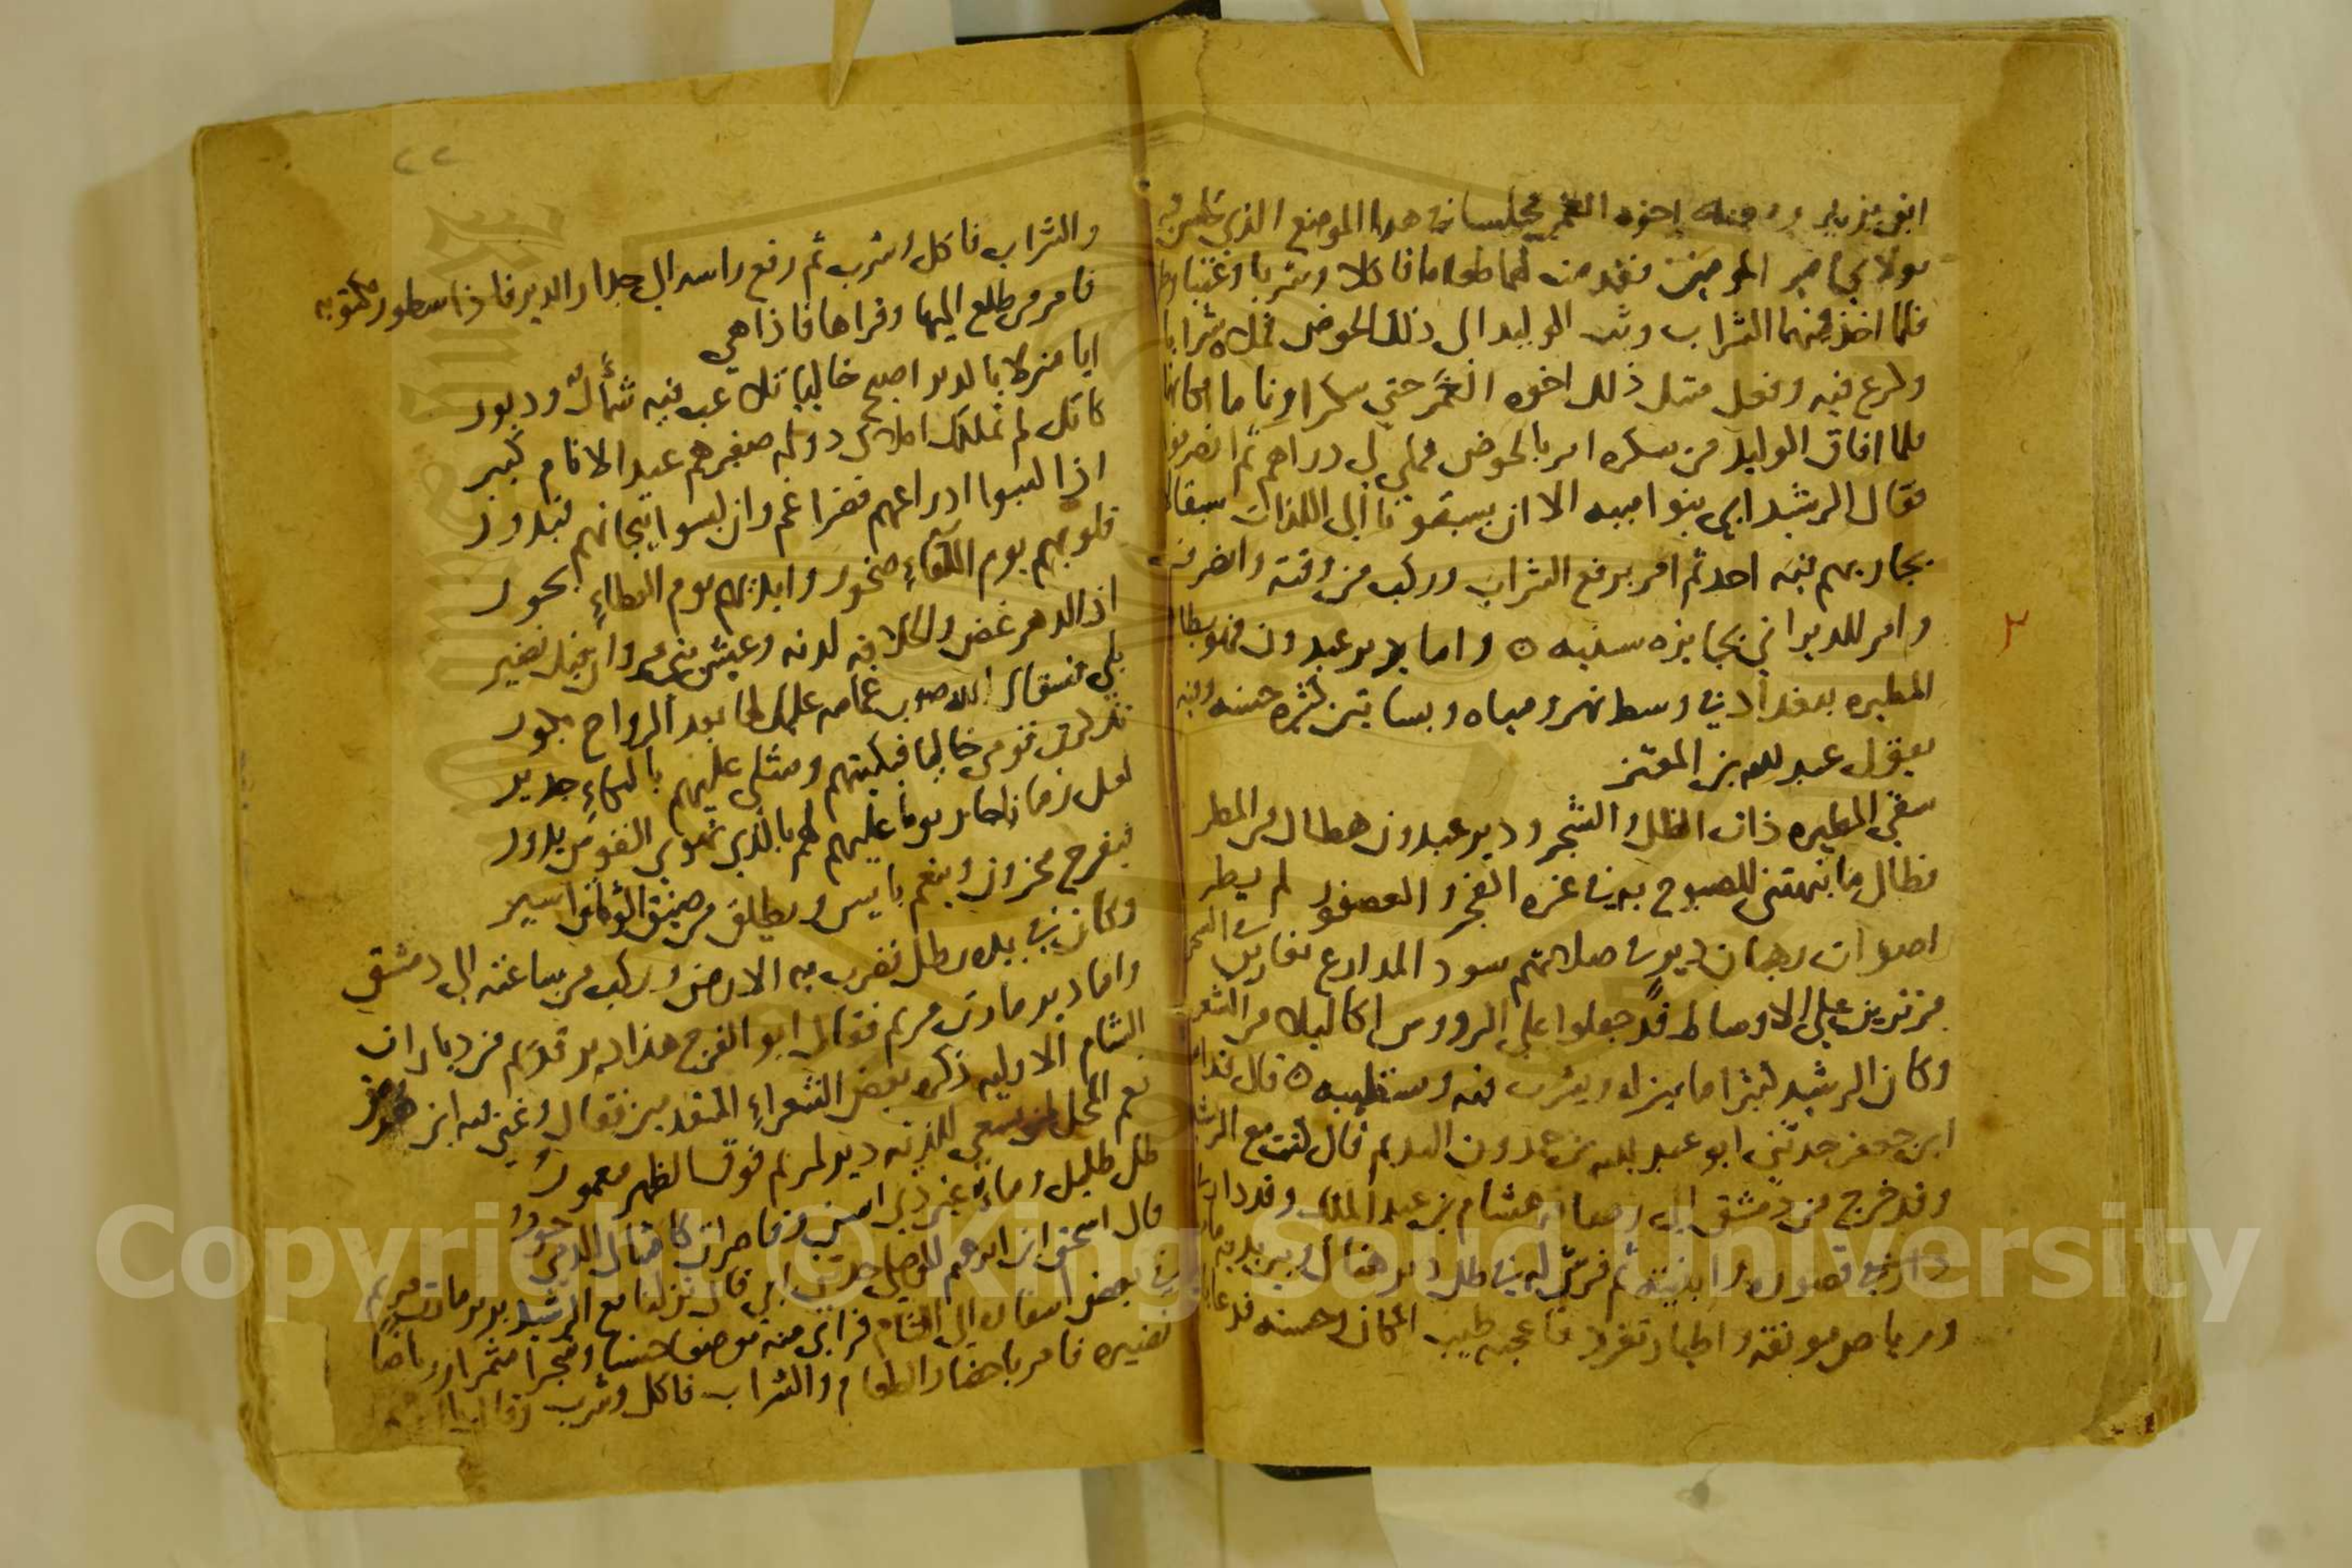 ابن يزيد ومعه اخوه الغمر فجلسا في هذا الموضع الذي جلس فيه
مولاي امير المومنين فقدمت لهما طعاما فاكلا وشربا وغنيا
فلما اخذ منهما الشراب وثب الوليد الى ذلك الحوض فملاه شرابا
وكرع فيه وفعل مثل ذلك اخوه الغمر حتى سكرا وناما مكانهما
فلما افاق الوليد من سكره امر بالحوض فملي لي دراهم ثم انصرفوا
فقال الرشيد ابى بنوا اميه الا ان يسبقونا الى اللذات سبقا لا
يجاريهم فيه احد ثم امر برفع الشراب وركب من وقته وانصرف
وامر للديراني بجايزه سنيه ٥ واما دير عبدون فهو بظاهر
المطيره ببغداد في وسط نهر ومياه وبساتين كثره حسنه وفيه
يقول عبد لله بن المعتز
سقى المطيره ذات الظل والشجر ودير عبدون هطال من المطر
فطال ما نبهتني للصبوح به في غره الفجر والعصفور لم يطر
اصوات رهبان دير في صلاتهم سود المدارع نعارين في السحر
مزنرين على الاوساط قد جعلوا على الرووس اكاليلا من الشعر
وكان الرشيد كثيرا ما ينزله ويشرب فيه ويستطيبه ٥ قال قدامه
ابن جعفر حدثني ابو عبد لله بن حمدون النديم قال كنت مع الرشيد
وقد خرج من دمشق الى رصافه هشام بن عبد الملك وقد دار
دار في قصوره وابنيته ثم فرش له في ظل دير هناك وبين يديه ما
ورياض مونقه واطيار تغرد فاعجبه طيب المكان وحسنه فدعا
٢٢
والشراب فاكل وشرب ثم رفع راسه الى جدار الدير فاذا سطور مكتوبه
فامر من طلع اليها وقراها فاذا هي
ايا منزلا بالدير اصبح خاليا تلاعب فيه شمأل ودبور
كانك لم تملكك املاك دوله صغيرهم عند الانام كبير
اذا لبسوا ادراعهم فضراغم وان لبسوا تيجانهم فبدور
قلوبهم يوم اللقاء صخور وايديهم يوم العطاء بحور
اذ الدهر غض والخلافه لدنه وعيش بني مروان فيك نضير
بلى فسقاك الله صوب غمامه عليك لها بعد الرواح بكور
تذكرت قومي خاليا فبكيتهم ومثلي عليهم بالبكاء جدير
لعل زمانا جار يوما عليهم لهم بالذي تهوى النفوس يدور
فيفرح محزون وينعم بايس ويطلق من ضيق الوثاق اسير
وكان في يده رطل فضرب به الارض وركب من ساعته الى دمشق
واما دير مارت مريم فقال ابو الفرج هذا دير قديم من ديارات
الشام الاوليه ذكره بعض الشعراء المتقدمين فقال وغنى فيه ابن محرز
نعم المحل لمن يسعى للذته دير لمريم فوق الظهر معمور
ظل ظليل وماء غير ذي اسن وقاصرات كامثال الدمى حور
قال اسحق ابن ابرهيم الموصلي حدثني ابي قال نزلنا مع الرشيد بدير مارت مريم
في بعض اسفاره الى الشام فراى منه موضعا حسنا وشجرا مثمرا ورياضا
نضيره فامر باحضار الطعام والشراب فاكل وشرب